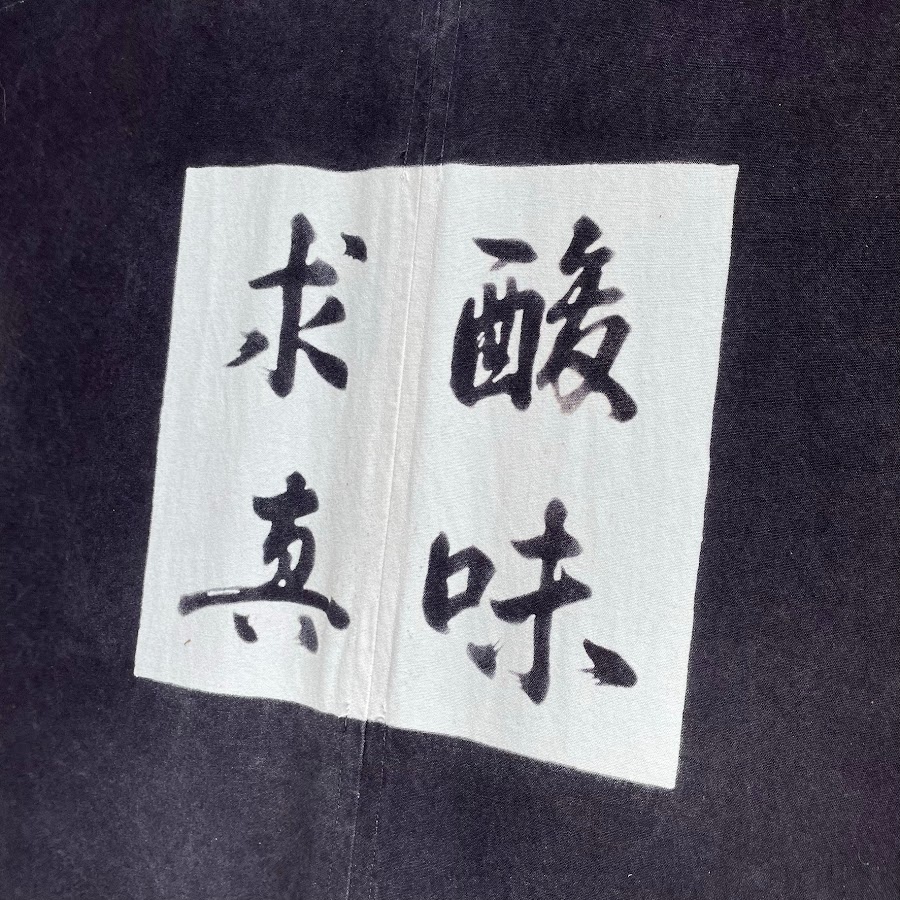 酸味
求真